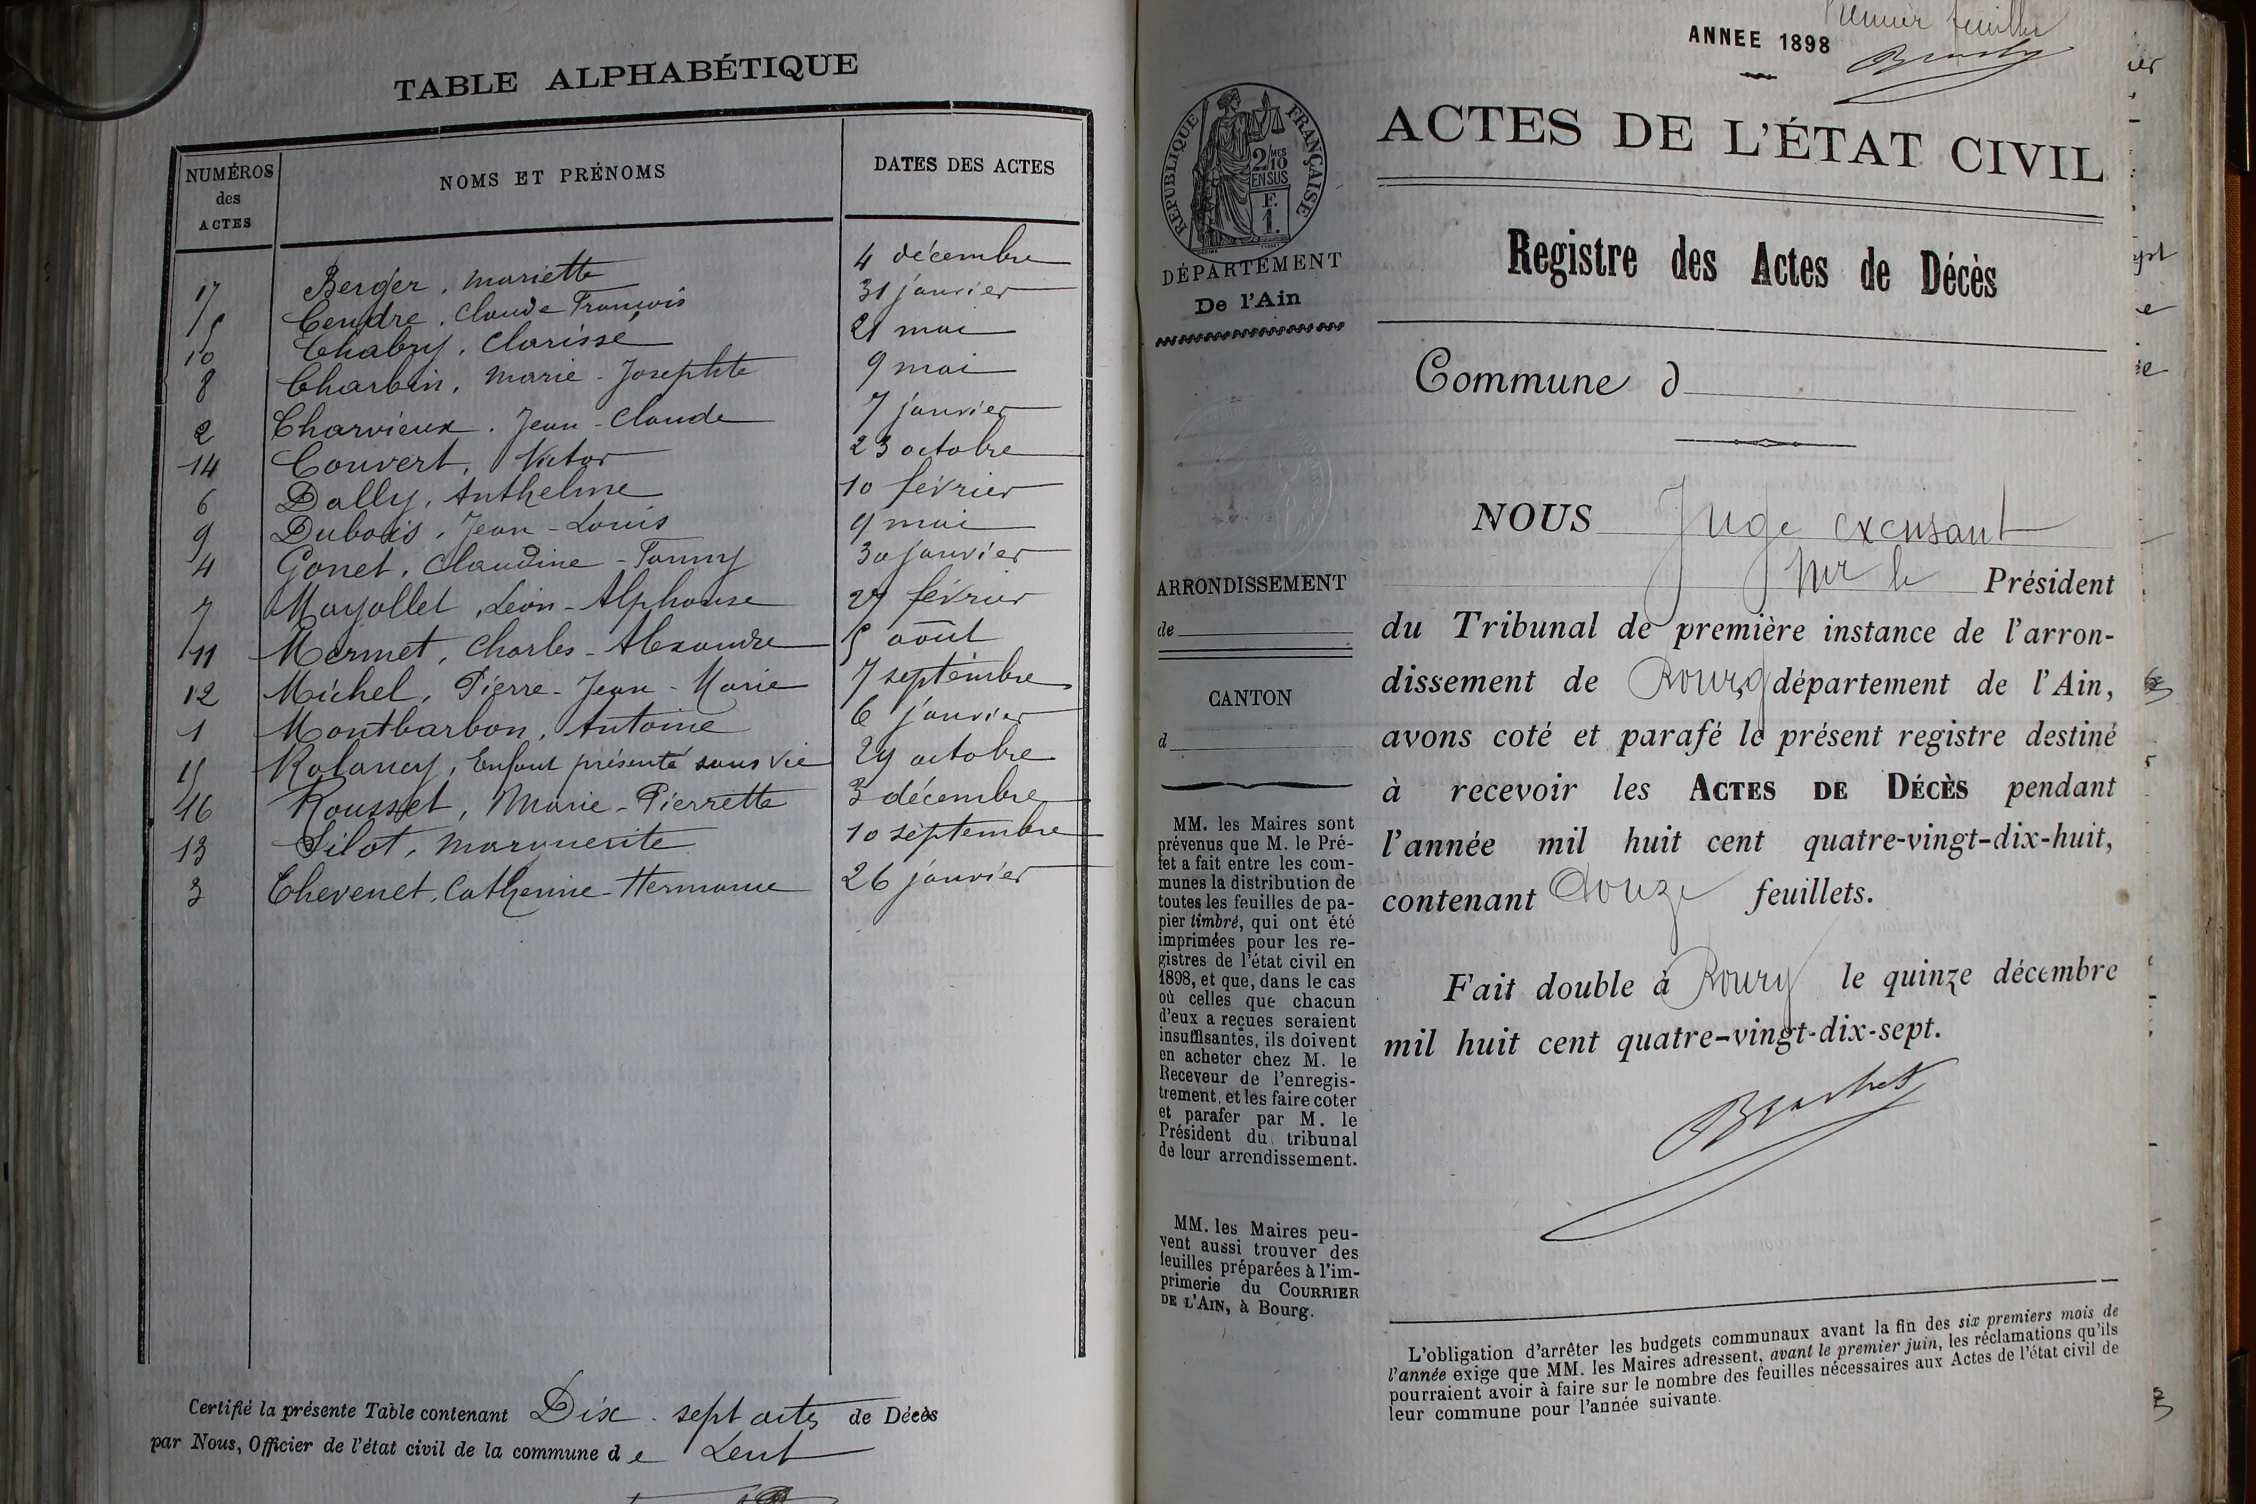 TABLE ALPHABÉTIQUE
NUMÉROS des ACTES NOMS ET PRÉNOMS DATES DES ACTES
17 Berger, Mariette 4 décembre
5 Cendre, Claude François 31 janvier
10 Chabry, Clarisse 21 mai
8 Charbin, Marie-Josephte 9 mai
2 Charvieux, Jean-Claude 7 janvier
14 Convert, Victor 23 octobre
6 Dally, Anthelme 10 février
9 Dubois, Jean-Louis 9 mai
4 Gonet, Claudine-Fanny 30 janvier
7 Mayollet, Léon-Alphonse 27 février
11 Mermet, Charles-Alexandre 5 août
12 Michel, Pierre-Jean-Marie 7 septembre
1 Montbarbon, Antoine 6 janvier
15 Rolancy, Enfant présenté sans vie 29 octobre
16 Rousset, Marie-Pierrette 3 décembre
13 Silot, Marguerite 10 septembre
3 Thevenet, Catherine-Hermance 26 janvier
Certifié la présente Table contenant Dix-sept actes de Décès
par Nous, Officier de l'état civil de la commune de Lent
Premier feuillet
ANNEE 1898
RÉPUBLIQUE FRANÇAISE
2/10 MES
EN SUS
F.
1.
DÉPARTEMENT
De l'Ain
ARRONDISSEMENT
de
CANTON
d
MM. les Maires sont
prévenus que M. le Pré-
fet a fait entre les com-
munes la distribution de
toutes les feuilles de pa-
pier timbré, qui ont été
imprimées pour les re-
gistres de l'état civil en
1898, et que, dans le cas
où celles que chacun
d'eux a reçues seraient
insuffisantes, ils doivent
en acheter chez M. le
Receveur de l'enregis-
trement, et les faire coter
et parafer par M. le
Président du tribunal
de leur arrondissement.
MM. les Maires peu-
vent aussi trouver des
feuilles préparées à l'im-
primerie du COURRIER
DE L'AIN, à Bourg.
ACTES DE L'ÉTAT CIVIL
Registre des Actes de Décès
Commune d
NOUS Juge excusant
Mr le Président
du Tribunal de première instance de l'arron-
dissement de Bourg département de l'Ain,
avons coté et parafé le présent registre destiné
à recevoir les ACTES DE DÉCÈS pendant
l'année mil huit cent quatre-vingt-dix-huit,
contenant Douze feuillets.
Fait double à Bourg le quinze décembre
mil huit cent quatre-vingt-dix-sept.
L'obligation d'arrêter les budgets communaux avant la fin des six premiers mois de
l'année exige que MM. les Maires adressent, avant le premier juin, les réclamations qu'ils
pourraient avoir à faire sur le nombre des feuilles nécessaires aux Actes de l'état civil de
leur commune pour l'année suivante.